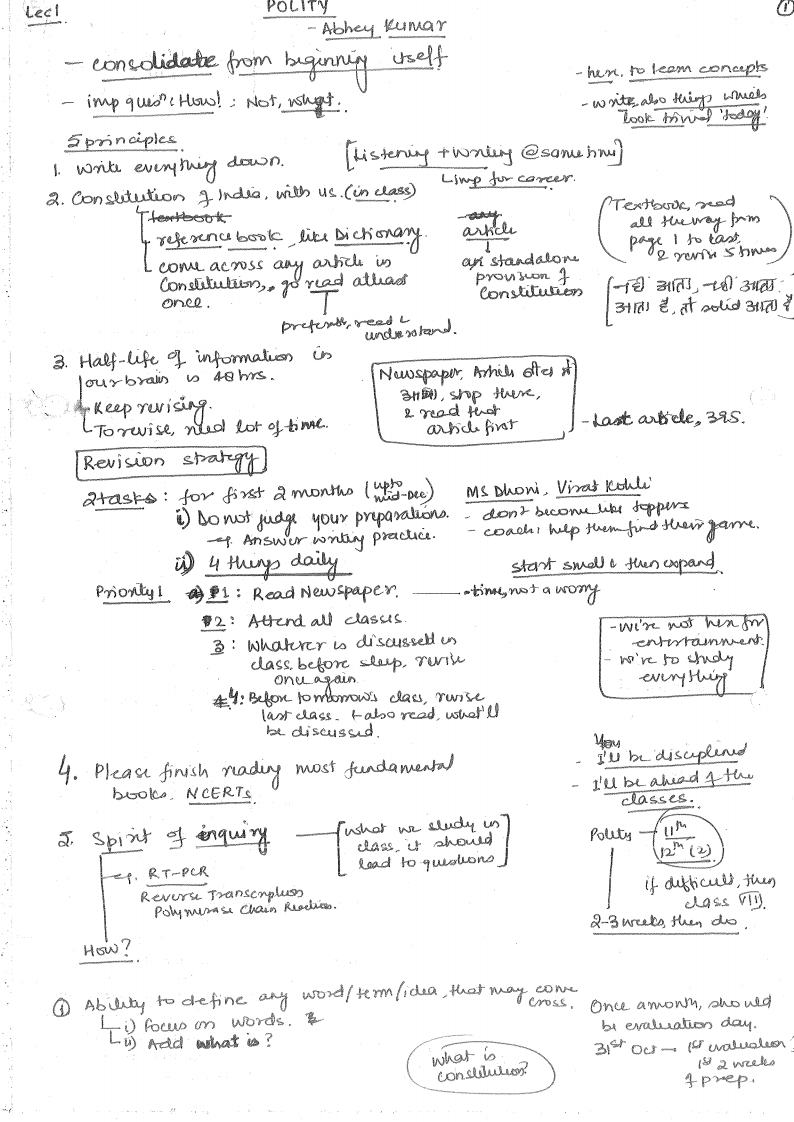 Lec1
POLITY
①
- Abhay Kumar
- consolidate from beginning itself
- imp quesⁿ: How! : Not, what.
- here, to learn concepts
- write, also things which
look trivial 'today'.
5 principles
1. Write everything down.
[Listening + writing @ same time]
↳ imp for career.
2. Constitution of India, with us. (in class)
textbook
reference book, like Dictionary.
come across any article in
Constitution, go read atleast
once.
preferably, read &
understand.
any
article
↓
an standalone
provision of
Constitution
(Textbook, read
all the way from
page 1 to last,
& revise 5 times)
[नहीं आता, नहीं आता
आता है, तो solid आता है
3. Half-life of information in
our brain is 48 hrs.
Keep revising.
To revise, need lot of time.
Newspaper, Article
stop there,
& read that
article first
- Last article, 395.
Revision strategy
2 tasks: for first 2 months (upto
mid-Dec)
i) Do not judge your preparations.
→ eg. Answer writing practice.
ii) 4 things daily
MS Dhoni, Virat Kohli
- don't become like toppers
- coach: help them find their game.
start small & then expand
Priority 1
#1: Read Newspaper. — time, not a worry
#2: Attend all classes.
3: Whatever is discussed in
class, before sleep, revise
once again
4: Before tomorrow's class, revise
last class. & also read, what'll
be discussed.
- we're not here for
entertainment.
- we're to study
everything
4. Please finish reading most fundamental
books. NCERTs
You
- I'll be disciplined
- I'll be ahead of the
classes.
5. Spirit of enquiry
[what we study in
class, it should
lead to questions]
eg. RT-PCR
Reverse Transcription
Polymerase Chain Reaction.
How?
Polity — 11th
12th (2)
if difficult, then
class VIII.
2-3 weeks, then do.
① Ability to define any word/term/idea, that may come
cross.
i) Focus on words.
ii) Add what is?
What is
constitution?
Once a month, should
be evaluation day.
31st Oct → 1st evaluation
1st 2 weeks
of prep.